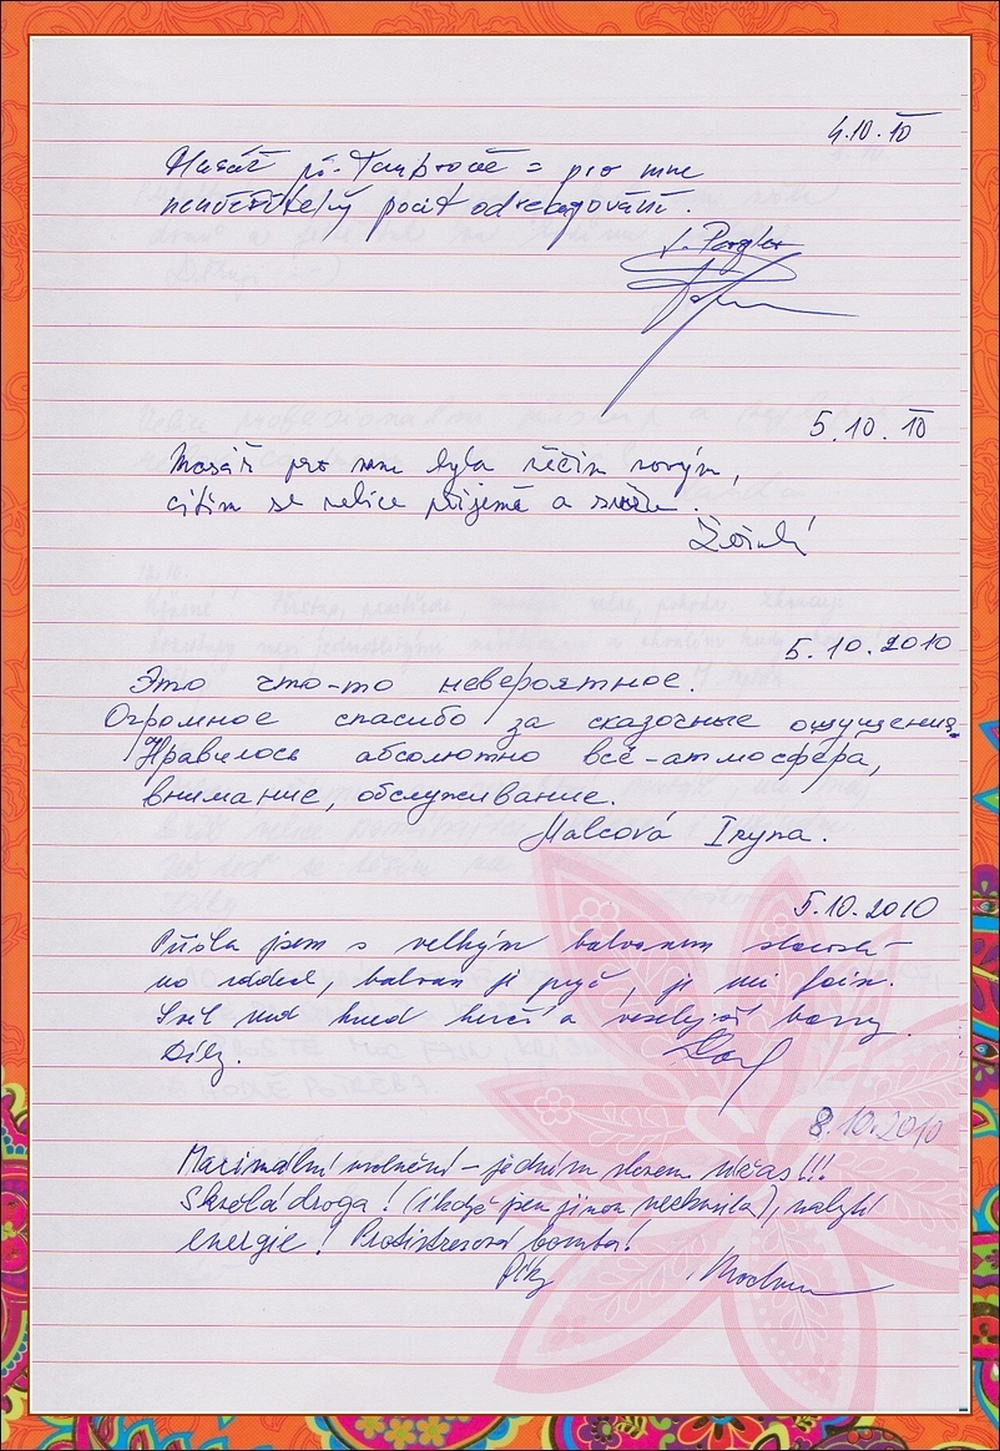 4.10.10
Masáž po Tambrově = pro mne
neuvěřitelný pocit odreagování.
5.10.10
Masáž pro mne byla něčím novým,
cítím se velice příjemě a svěže.
5.10.2010
Это что-то невероятное.
Огромное спасибо за сказочные ощущения.
Нравилось абсолютно всё - атмосфера,
внимание, обслуживание.
Malcová Iryna.
5.10.2010
Přišla jsem s velkým balvanem starostí
na zádech, balvan je pryč, je mi fajn.
Svět má hned hezčí a veselejší barvy.
Díky.
8.10.2010
Maximální uvolnění - jedním slovem úžas!!!
Skvělá droga! (i když jsem jinou neokusila), nabytí
energie! Protistresová bomba!
Díky